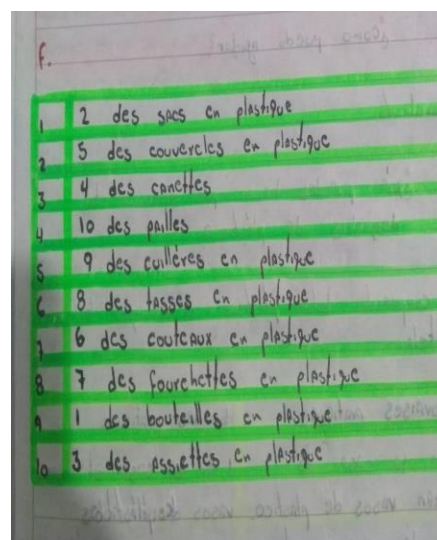 F.
1 2 des sacs en plastique
2 5 des couvercles en plastique
3 4 des canettes
4 10 des pailles
5 9 des cuillères en plastique
6 8 des tasses en plastique
7 6 des couteaux en plastique
8 7 des fourchettes en plastique
9 1 des bouteilles en plastique
10 3 des assiettes en plastique